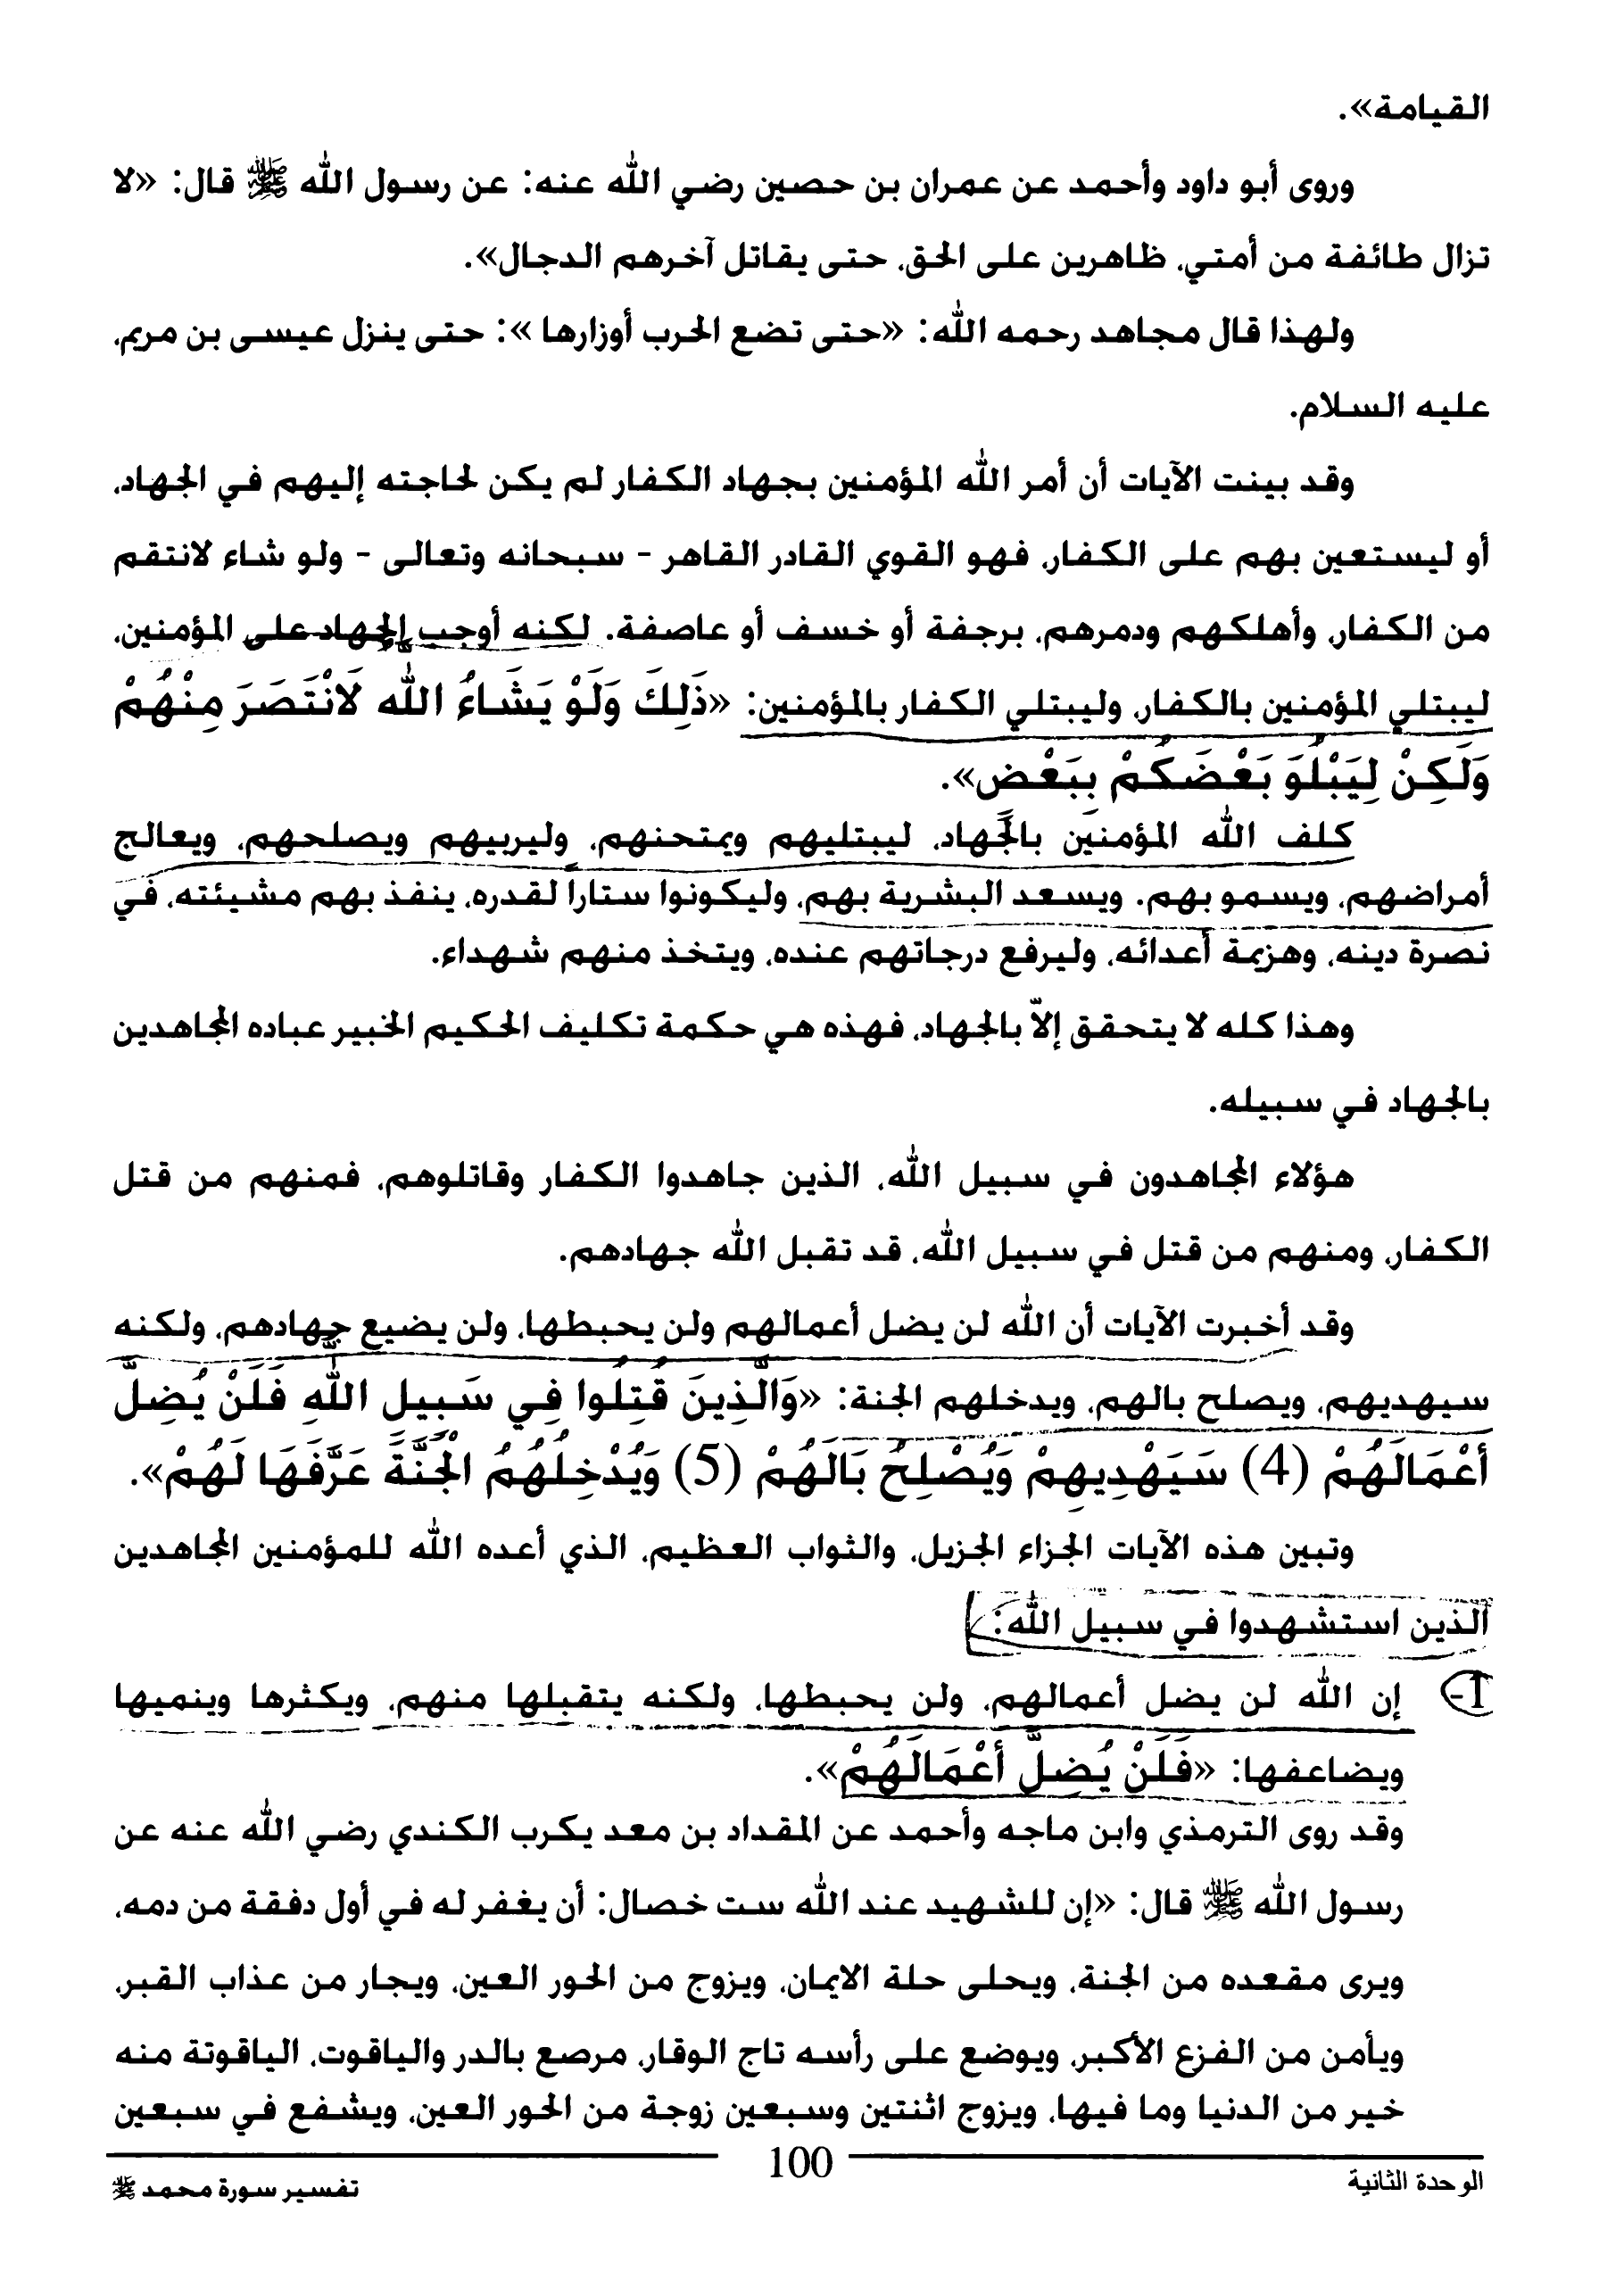 القيامة».
وروى أبو داود وأحمد عن عمران بن حصين رضي الله عنه: عن رسول الله ﷺ قال: «لا
تزال طائفة من أمتي، ظاهرين على الحق، حتى يقاتل آخرهم الدجال».
ولهذا قال مجاهد رحمه الله: «حتى تضع الحرب أوزارها »: حتى ينزل عيسى بن مريم،
عليه السلام.
وقد بينت الآيات أن أمر الله المؤمنين بجهاد الكفار لم يكن لحاجته إليهم في الجهاد،
أو ليستعين بهم على الكفار، فهو القوي القادر القاهر - سبحانه وتعالى - ولو شاء لانتقم
من الكفار، وأهلكهم ودمرهم، برجفة أو خسف أو عاصفة. لكنه أوجب الجهاد على المؤمنين،
ليبتلي المؤمنين بالكفار، وليبتلي الكفار بالمؤمنين: «ذَلِكَ وَلَوْ يَشَاءُ الله لَانْتَصَرَ مِنْهُمْ
وَلَكِنْ لِيَبْلُوَ بَعْضَكُمْ بِبَعْضٍ».
كلف الله المؤمنين بالجهاد، ليبتليهم ويمتحنهم، وليربيهم ويصلحهم، ويعالج
أمراضهم، ويسمو بهم. ويسعد البشرية بهم، وليكونوا ستاراً لقدره، ينفذ بهم مشيئته، في
نصرة دينه، وهزيمة أعدائه، وليرفع درجاتهم عنده، ويتخذ منهم شهداء.
وهذا كله لا يتحقق إلاّ بالجهاد، فهذه هي حكمة تكليف الحكيم الخبير عباده المجاهدين
بالجهاد في سبيله.
هؤلاء المجاهدون في سبيل الله، الذين جاهدوا الكفار وقاتلوهم، فمنهم من قتل
الكفار، ومنهم من قتل في سبيل الله، قد تقبل الله جهادهم.
وقد أخبرت الآيات أن الله لن يضل أعمالهم ولن يحبطها، ولن يضيع جهادهم، ولكنه
سيهديهم، ويصلح بالهم، ويدخلهم الجنة: «وَالَّذِينَ قُتِلُوا فِي سَبِيلِ اللَّهِ فَلَنْ يُضِلَّ
أَعْمَالَهُمْ (4) سَيَهْدِيهِمْ وَيُصْلِحُ بَالَهُمْ (5) وَيُدْخِلُهُمُ الْجَنَّةَ عَرَّفَهَا لَهُمْ».
وتبين هذه الآيات الجزاء الجزيل، والثواب العظيم، الذي أعده الله للمؤمنين المجاهدين
الذين استشهدوا في سبيل الله:
1- إن الله لن يضل أعمالهم، ولن يحبطها، ولكنه يتقبلها منهم، ويكثرها وينميها
ويضاعفها: «فَلَنْ يُضِلَّ أَعْمَالَهُمْ».
وقد روى الترمذي وابن ماجه وأحمد عن المقداد بن معد يكرب الكندي رضي الله عنه عن
رسول الله ﷺ قال: «إن للشهيد عند الله ست خصال: أن يغفر له في أول دفقة من دمه،
ويرى مقعده من الجنة، ويحلى حلة الايمان، ويزوج من الحور العين، ويجار من عذاب القبر،
ويأمن من الفزع الأكبر، ويوضع على رأسه تاج الوقار، مرصع بالدر والياقوت، الياقوتة منه
خير من الدنيا وما فيها، ويزوج اثنتين وسبعين زوجة من الحور العين، ويشفع في سبعين
الوحدة الثانية
100
تفسير سورة محمد ﷺ